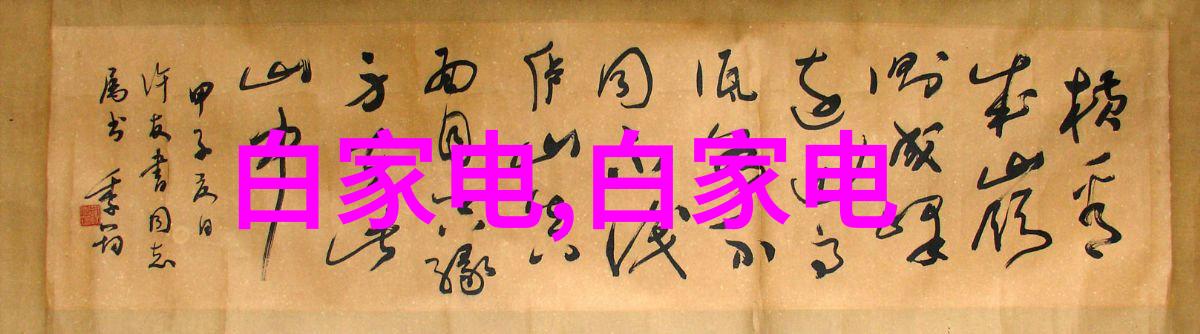 横看
成岭
侧成峰
远近高
低各不
同不识
庐山真
面目只缘
身在此
山中
甲子夏日
许友书同志
属书
白家电,白家电